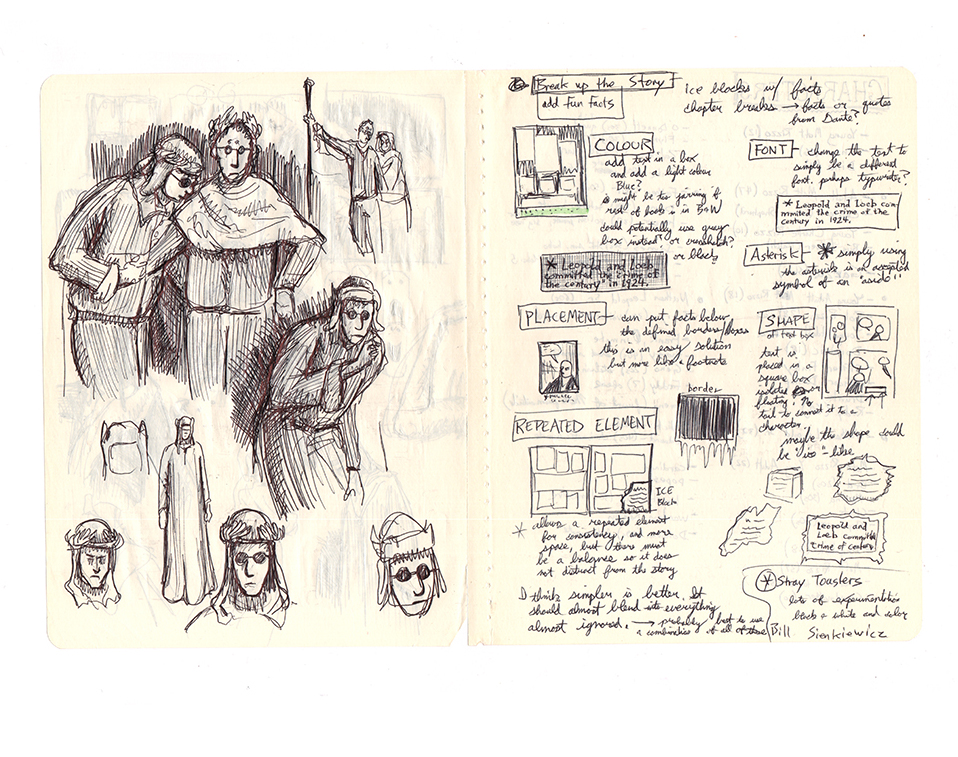 Break up the Story
add Fun Facts
ice blocks w/ facts
chapter breaks → facts or quotes
from Dante?
COLOUR
add text in a box
and add a light colour
Blue?
↳ might be too jarring if
rest of book is in B+W
could potentially use gray
box instead? or crosshatch?
or black
* Leopold and Loeb
committed the crime of
the century" in 1924.
PLACEMENT
can put facts below
the defined borders/boxes
this is an easy solution
but more like a footnote
REPEATED ELEMENT
ICE
Block
* allows a repeated element
for consistency, and more
space, but there must
be a balance so it does
not distract from the story
I think simpler is better. It
should almost blend into everything
almost ignored. → probably best to use
a combination of all of these
FONT
change the text to
simply be a different
font. perhaps typewriter?
* Leopold and Loeb com-
mitted the crime of the
century in 1924.
Asterisk
* simply using
the asterisk is an accepted
symbol of an "aside"
SHAPE
of text box
text is
placed in a
square box
isolated or
floating. No
tail to connect it to a
character.
maybe the shape could
be "ice"-like
border
Leopold and
Loeb committed
crime of century
* Stray Toasters
lots of experimentation
black & white and color
Bill Sienkiewicz